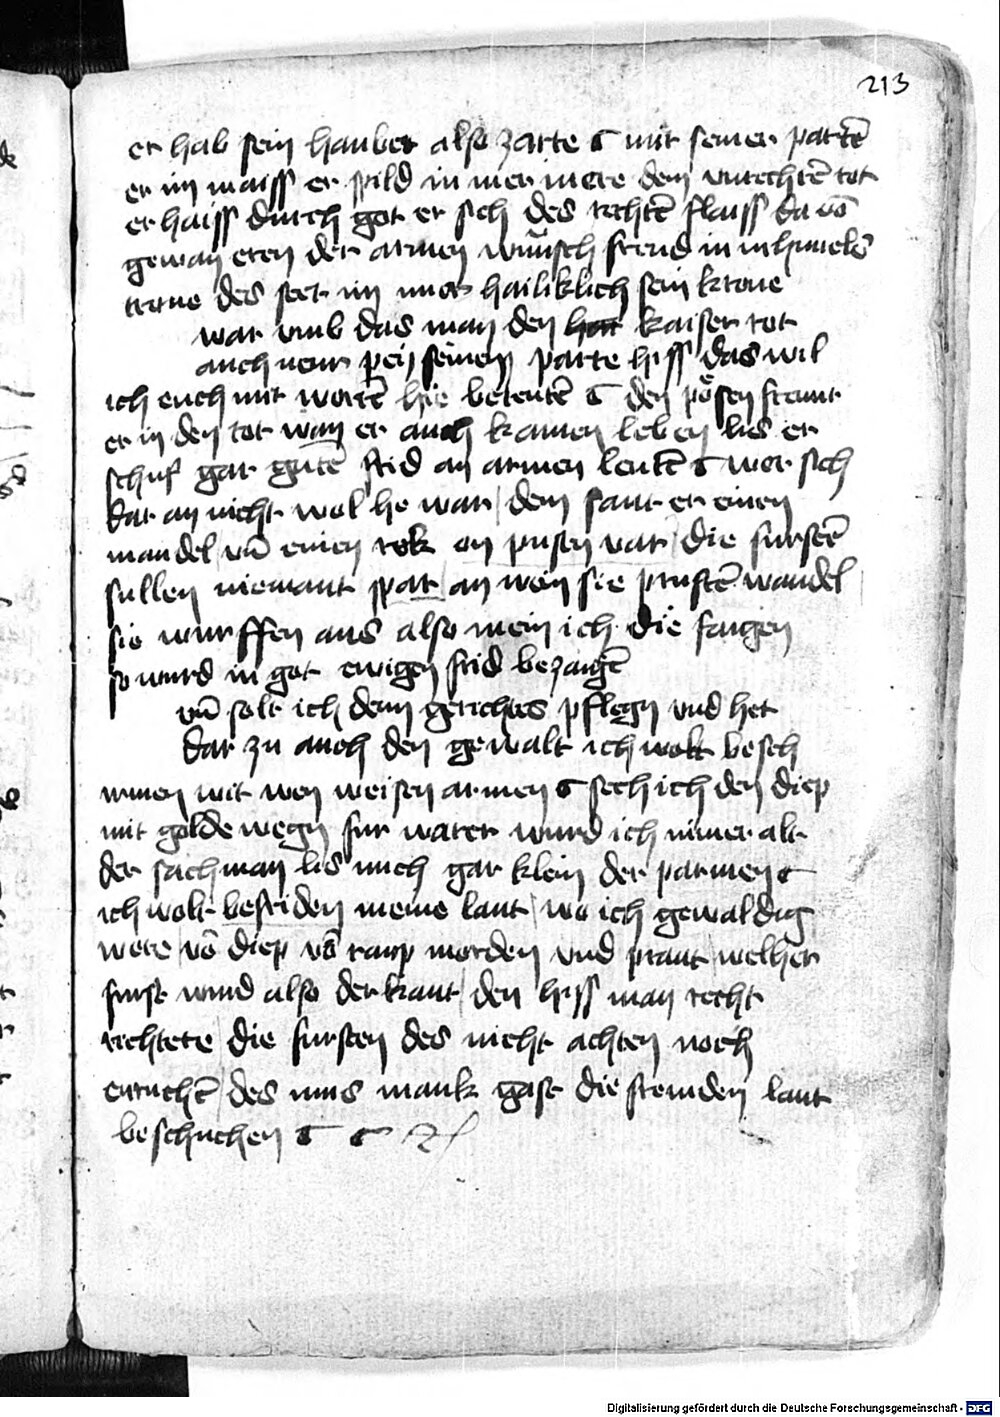 213
er hab sein haubet also zarte mit seiner parttē
er im maiss er pild in mer mere dem vnrechtē tot
er haiss durch got er sich des rechtē flaiss da vō
gewan eren der armen wunsch freud in in himels
trone des sect im mer hailiklich sein krone
war vmb das man den kaiser rot
auch neur peij seinem parte hiss das wil
ich euch mit wortē hie beteutē den pösen frumt
er in den tot wan er auch kamen leben lies er
schuf gar gutē frid an armen leutē wer sich
dar an nicht wol he war dem sant er einen
mandel vn̄ einen rok an pusen var die furstē
sullen niemant spar an wem sie pruftē wandel
sie wurffen aus also mein ich die faigen
so wurd in got ewigen frid bezaigē
vn̄ solt ich dem gerichtes pflegn vnd het
dar zu auch den gewalt ich wolt besch
irmen wit wen weisen armen sech ich den diep
mit golde wegn fur water wurd ich nimer alt
der sach man lis mich gar klein der parmen
ich wolt befriden meine lant wo ich gewaldig
were vō diep vō raup morden vnd prant welher
furst wurd also derkant den hiss man recht
richtete die fursten des nicht achten noch
enruchē des mus mank gast die fremden lant
beschuchen
Digitalisierung gefördert durch die Deutsche Forschungsgemeinschaft - DFG